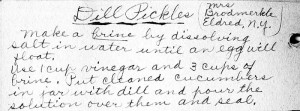 Dill Pickles
Mrs
Brodmerkle
Eldred, N.Y.
Make a brine by dissolving
salt in water until an egg will
float.
Use 1 cup vinegar and 3 cups of
brine. Put cleaned cucumbers
in jar with dill and pour the
solution over them and seal.